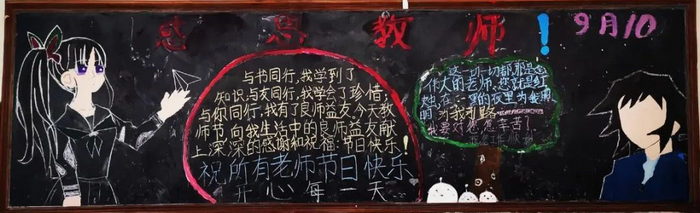 感恩教师！
9月10
与书同行,我学到了
知识,与友同行,我学会了珍惜,
与你同行,我有了良师益友,今天教
师节,向我生活中的良师益友献
上深深的感谢和祝福:节日快乐!
祝所有老师节日快乐
开心每一天
这一切都那是
伟大的老师,您就是灯
为我引路
我要对您说:辛苦了!